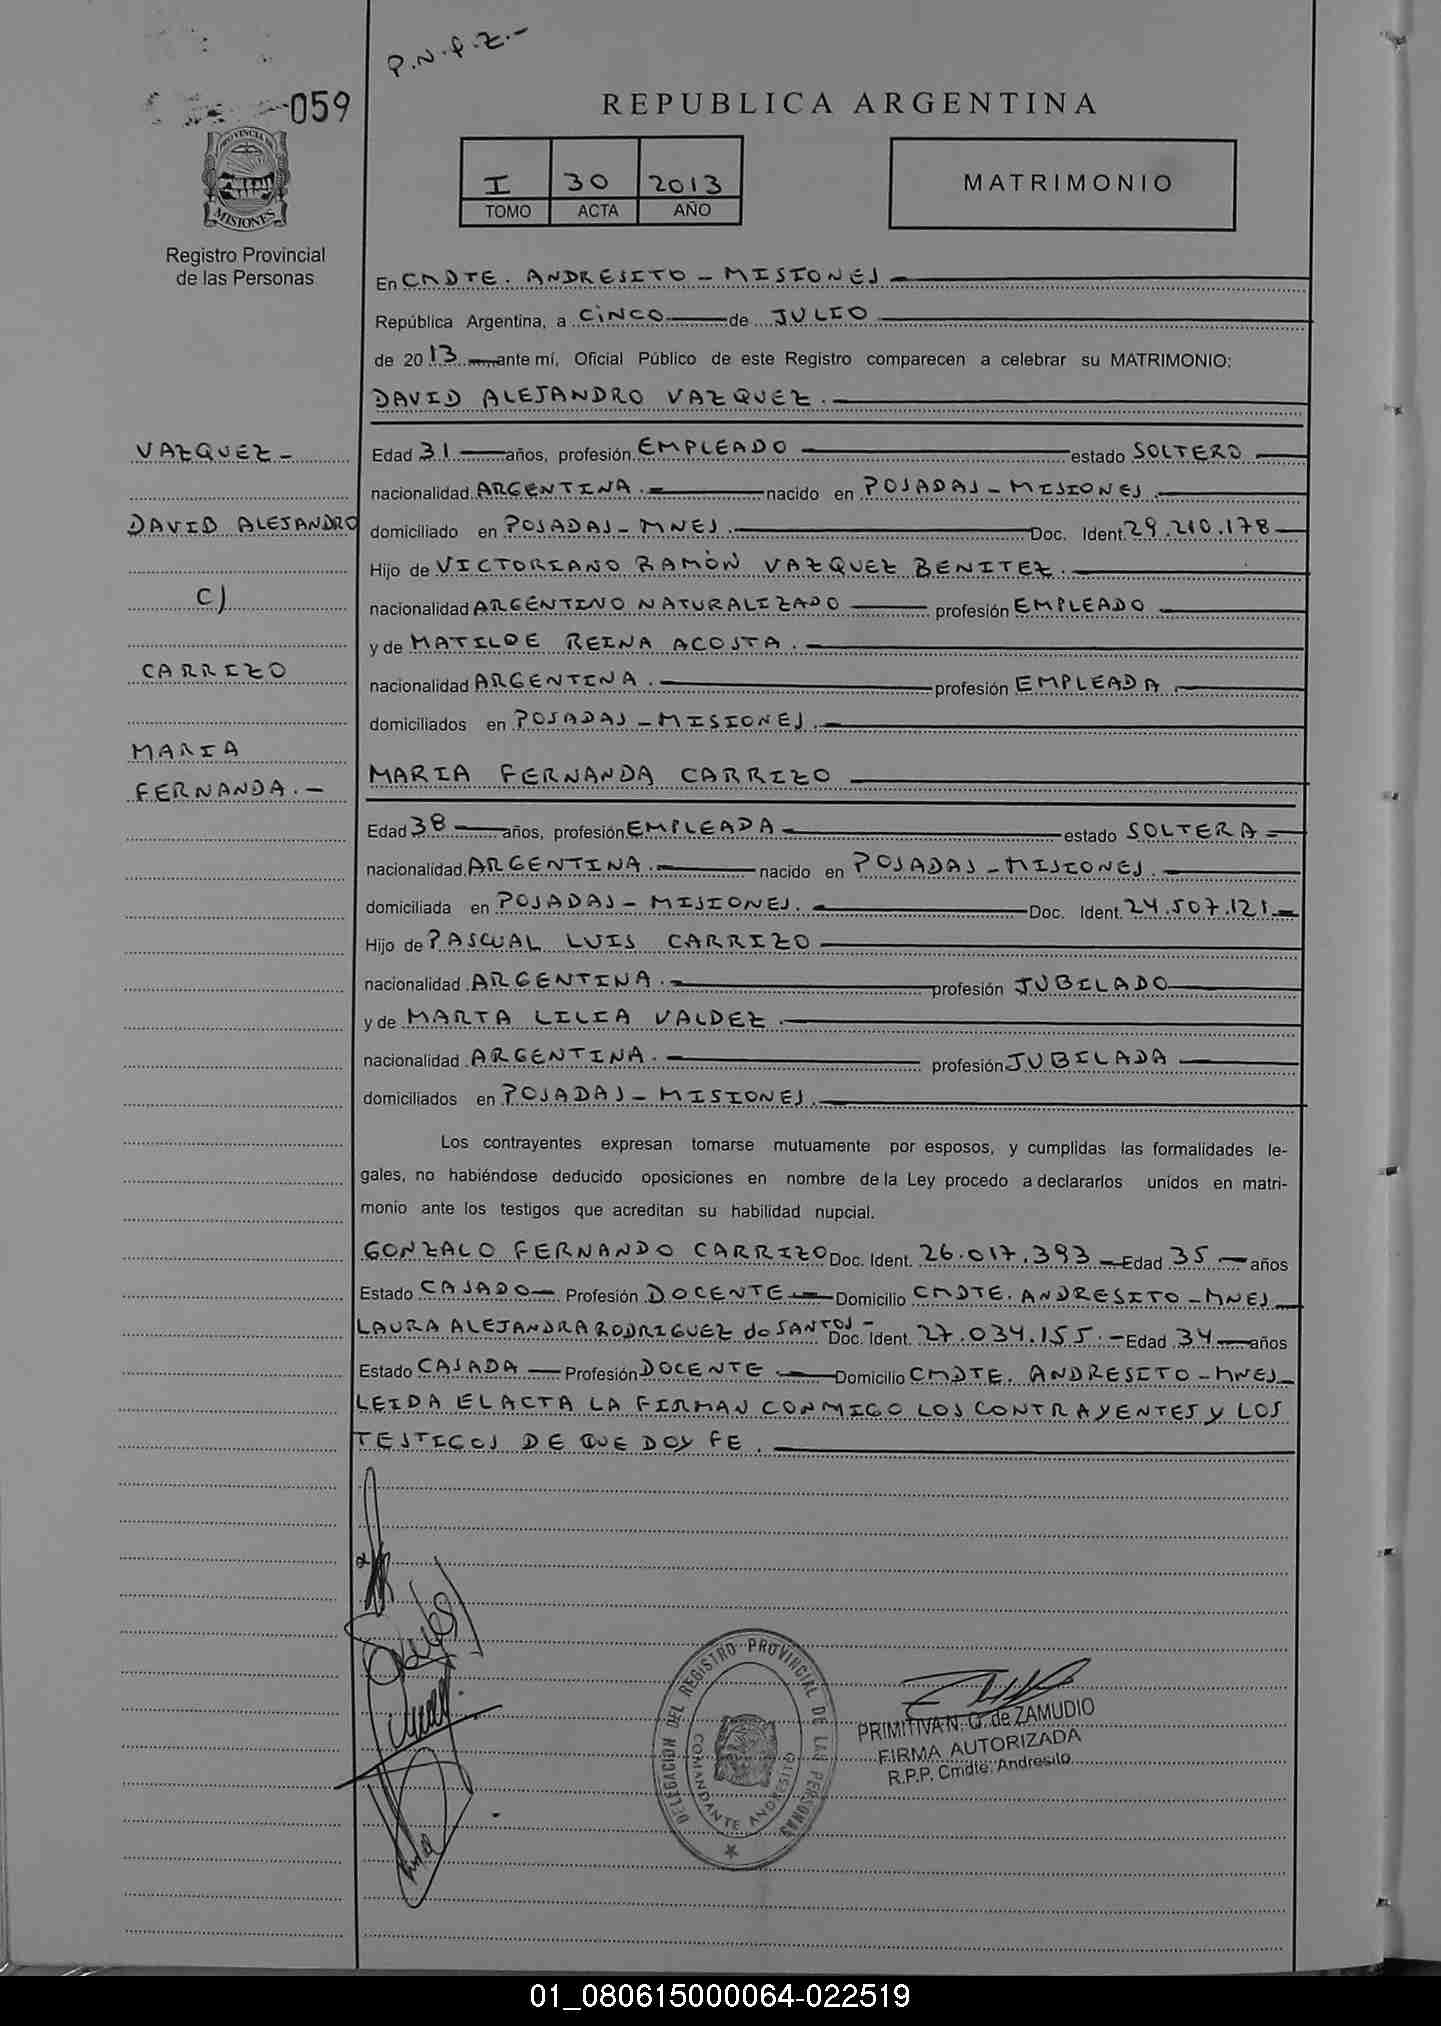 P.N.P.Z.-
059
PROVINCIA DE
MISIONES
Registro Provincial
de las Personas
REPUBLICA ARGENTINA
I 30 2013
TOMO ACTA AÑO
MATRIMONIO
En CMDTE. ANDRESITO - MISIONES
República Argentina, a CINCO de JULIO
de 2013 ante mí, Oficial Público de este Registro comparecen a celebrar su MATRIMONIO:
DAVID ALEJANDRO VAZQUEZ.
VAZQUEZ -
DAVID ALEJANDRO
C/
CARRIZO
MARIA
FERNANDA.-
Edad 31 años, profesión EMPLEADO estado SOLTERO
nacionalidad ARGENTINA. nacido en POSADAS - MISIONES.
domiciliado en POSADAS - MNES. Doc. Ident. 29.210.178
Hijo de VICTORIANO RAMÓN VAZQUEZ BENITEZ.
nacionalidad ARGENTINO NATURALIZADO profesión EMPLEADO
y de MATILDE REINA ACOSTA.
nacionalidad ARGENTINA. profesión EMPLEADA
domiciliados en POSADAS - MISIONES.
MARIA FERNANDA CARRIZO
Edad 38 años, profesión EMPLEADA estado SOLTERA
nacionalidad ARGENTINA. nacido en POSADAS - MISIONES.
domiciliada en POSADAS - MISIONES. Doc. Ident. 24.507.121
Hijo de PASCUAL LUIS CARRIZO
nacionalidad ARGENTINA. profesión JUBILADO
y de MARTA LILIA VALDEZ.
nacionalidad ARGENTINA. profesión JUBILADA
domiciliados en POSADAS - MISIONES.
Los contrayentes expresan tomarse mutuamente por esposos, y cumplidas las formalidades le-
gales, no habiéndose deducido oposiciones en nombre de la Ley procedo a declararlos unidos en matri-
monio ante los testigos que acreditan su habilidad nupcial.
GONZALO FERNANDO CARRIZO Doc. Ident. 26.017.393 Edad 35 años
Estado CASADO Profesión DOCENTE Domicilio CMDTE. ANDRESITO - MNES
LAURA ALEJANDRA RODRIGUEZ do SANTOS - Doc. Ident. 27.034.155.- Edad 34 años
Estado CASADA Profesión DOCENTE Domicilio CMDTE. ANDRESITO - MNES
LEIDA EL ACTA LA FIRMAN CONMIGO LOS CONTRAYENTES Y LOS
TESTIGOS DE QUE DOY FE.
DELEGACION DEL REGISTRO PROVINCIAL DE LAS PERSONAS
COMANDANTE ANDRESITO
PRIMITIVA N. Q. de ZAMUDIO
FIRMA AUTORIZADA
R.P.P. Cmdte. Andresito
01_080615000064-022519